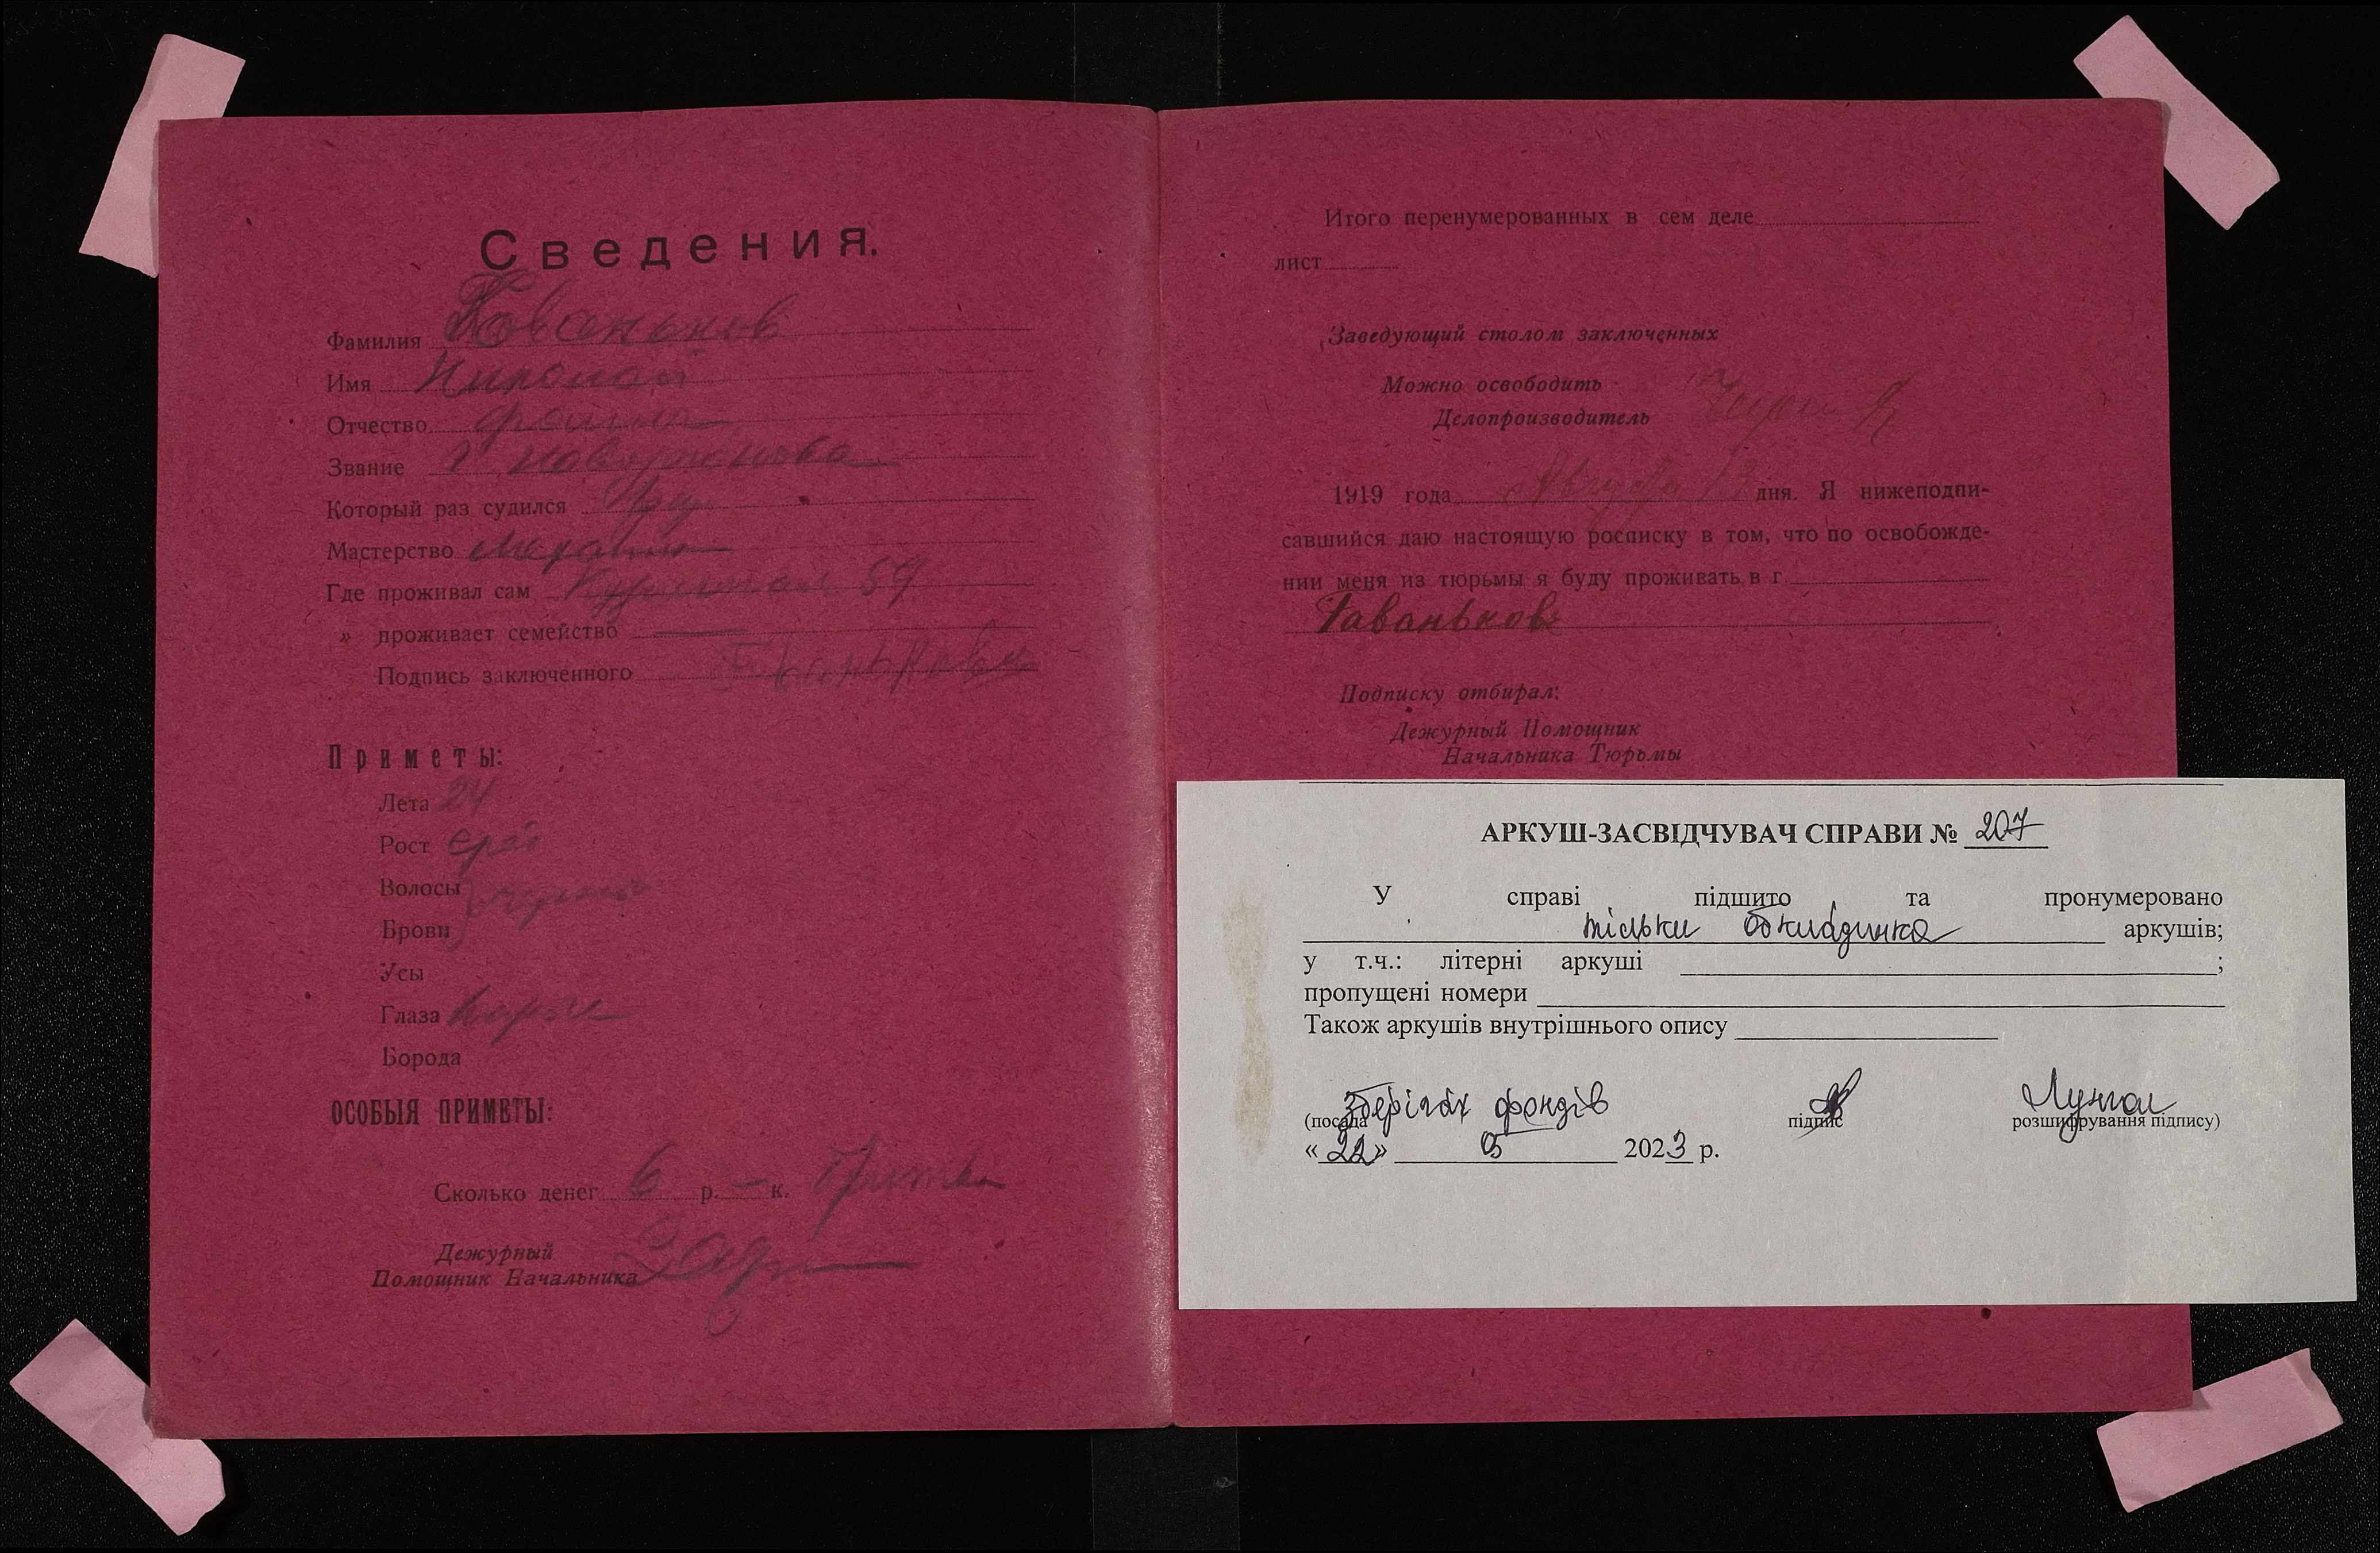 Сведения.
Фамилия Гованьков
Имя Николай
Отчество
Звание
Который раз судился
Мастерство
Где проживал сам 59
» проживает семейство —
Подпись заключенного
Приметы:
Лета 24
Рост сред
Волосы
Брови
Усы
Глаза карие
Борода
ОСОБЫЯ ПРИМЕТЫ:
Сколько денег 6 р. — к.
Дежурный
Помощник Начальника
Итого перенумерованных в сем деле
лист
Заведующий столом заключенных
Можно освободить
Делопроизводитель
1919 года Августа 13 дня. Я нижеподпи-
савшийся даю настоящую росписку в том, что по освобожде-
нии меня из тюрьмы я буду проживать в г.
Гаваньков
Подписку отбирал:
Дежурный Помощник
Начальника Тюрьмы
АРКУШ-ЗАСВІДЧУВАЧ СПРАВИ № 207
У справі підшито та пронумеровано
тільки обкладинка аркушів;
у т.ч.: літерні аркуші ;
пропущені номери
Також аркушів внутрішнього опису
зберігач фондів
(посада підпис розшифрування підпису)
«22» 05 2023 р.